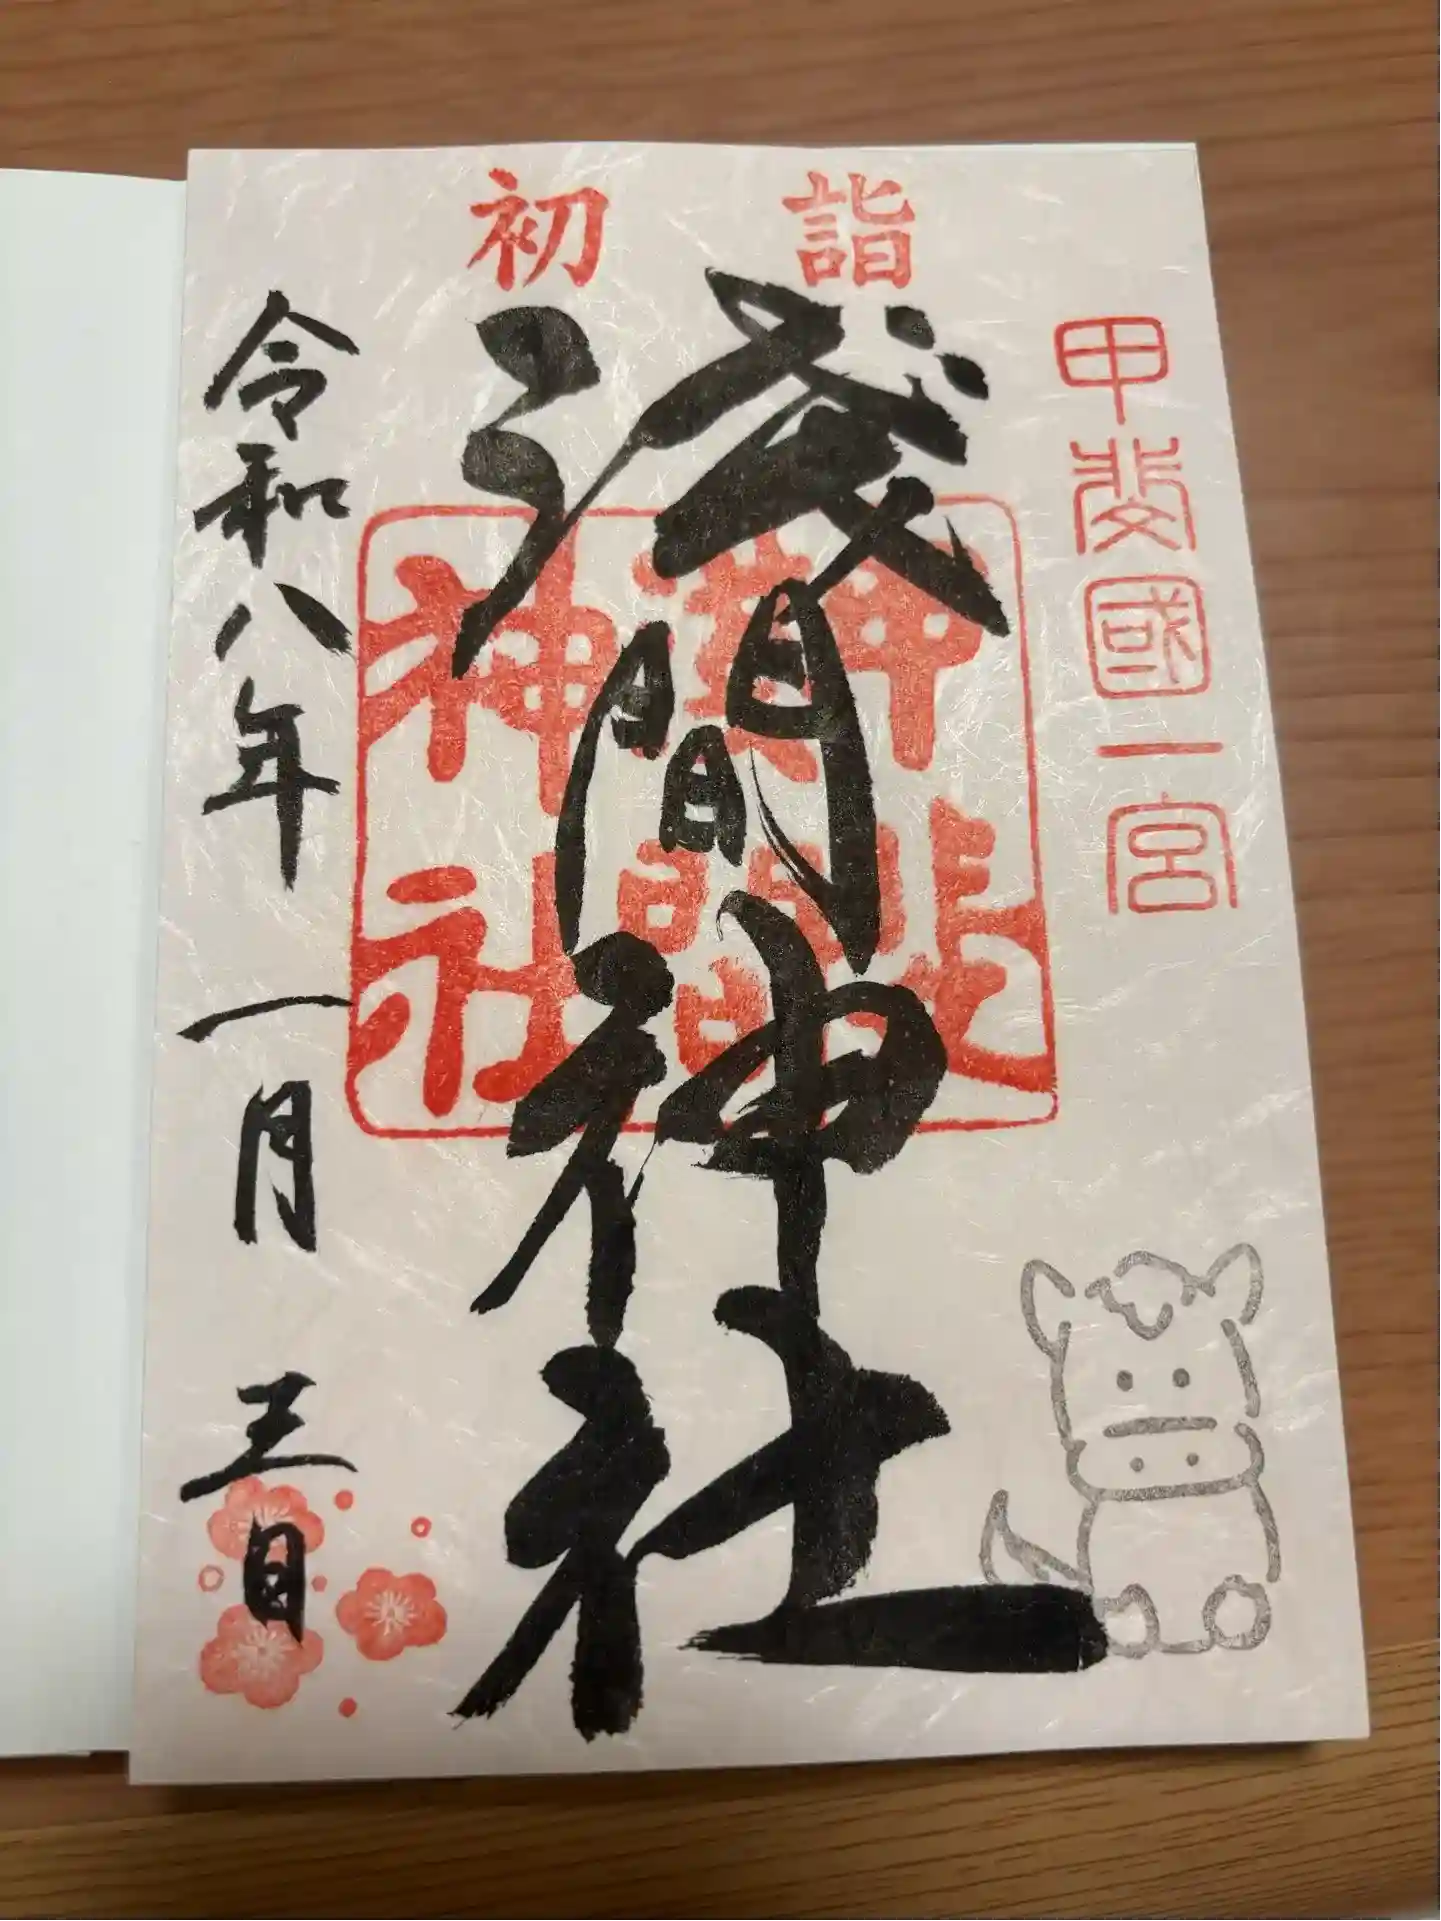 初詣
甲斐國一宮
淺間神社
甲斐
淺間
神社
令和八年一月三日